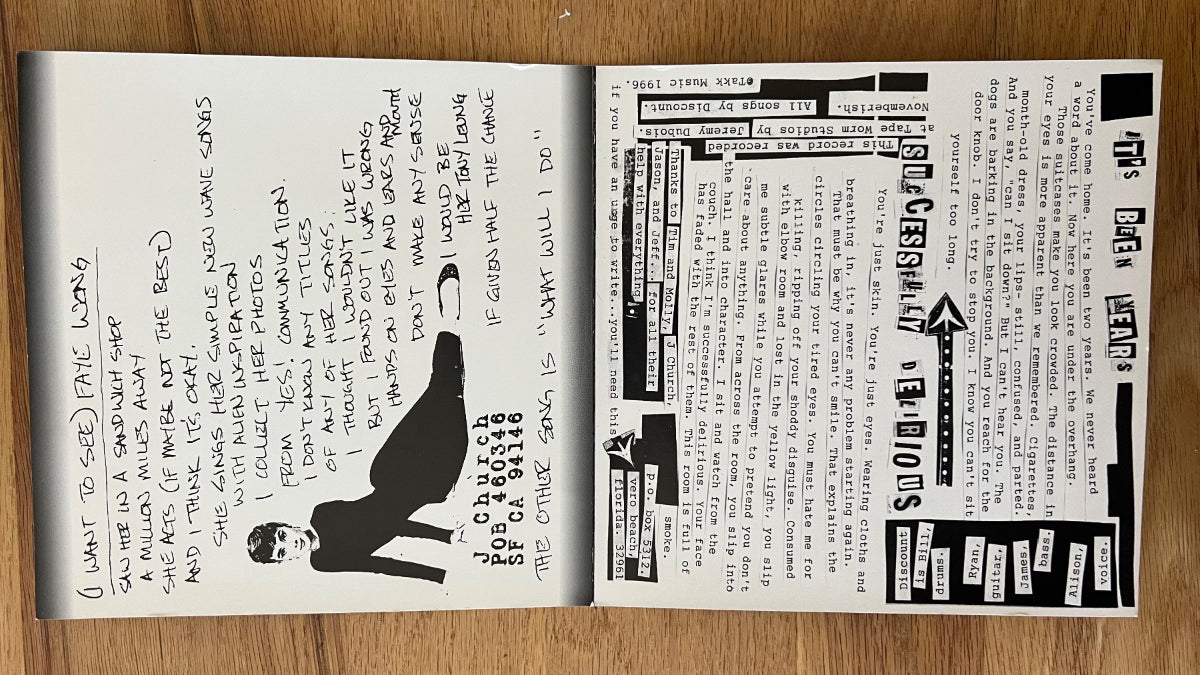 (I WANT TO SEE) FAYE WONG
SAW HER IN A SANDWICH SHOP
A MILLION MILES AWAY
SHE ACTS (IF MAYBE NOT THE BEST)
AND I THINK IT'S OKAY.
SHE SINGS HER SIMPLE NEW WAVE SONGS
WITH ALIEN INSPIRATION
I COLLECT HER PHOTOS
FROM YES! COMMUNICATION.
I DON'T KNOW ANY TITLES
OF ANY OF HER SONGS.
I THOUGHT I WOULDN'T LIKE IT
BUT I FOUND OUT I WAS WRONG
HANDS ON EYES AND EARS AND MOUTH
DON'T MAKE ANY SENSE
I WOULD BE
HER TONY LEUNG
IF GIVEN HALF THE CHANCE
J Church
POB 460346
SF CA 94146
THE OTHER SONG IS "WHAT WILL I DO"
IT'S BEEN YEARS
You've come home. It's been two years. We never heard
a word about it. Now here you are under the overhang.
Those suitcases make you look crowded. The distance in
your eyes is more apparent than we remembered. Cigarettes,
month-old dress, your lips- still, confused, and parted.
And you say, "can I sit down?" But I can't hear you. The
dogs are barking in the background. And you reach for the
door knob. I don't try to stop you. I know you can't sit
yourself too long.
Discount
is Bill,
drums.
Ryan,
guitar,
James,
bass.
Alison,
voice.
SUCCESfULLY DELIRIOUS
You're just skin. You're just eyes. Wearing cloths and
breathing in, it's never any problem starting again.
That must be why you can't smile. That explains the
circles circling your tired eyes. You must hate me for
killing, ripping off your shoddy disguise. Consumed
with elbow room and lost in the yellow light, you slip
me subtle glares while you attempt to pretend you don't
care about anything. From across the room, you slip into
the hall and into character. I sit and watch from the
couch. I think I'm successfully delirious. Your face
has faded with the rest of them. This room is full of
smoke.
This record was recorded
at Tape Worm Studios by Jeremy Dubois.
Novemberish.
All songs by Discount.
©Takk Music 1996.
Thanks to Tim and Molly, J Church,
Jason, and Jeff... for all their
help with everything!
if you have an urge to write...you'll need this
p.o. box 5312.
vero beach,
florida. 32961